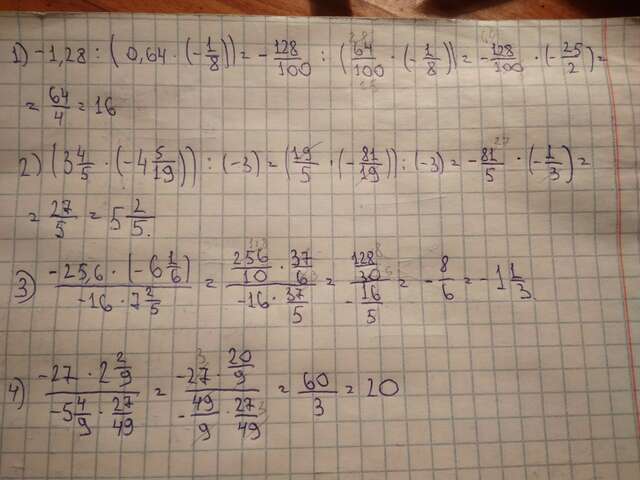 1) -1,28 : (0,64 · (-1/8)) = -128/100 : (64/100 · (-1/8)) = -128/100 · (-25/2) =
= 64/4 = 16
2) (3 4/5 · (-4 5/19)) : (-3) = (19/5 · (-81/19)) : (-3) = -81/5 · (-1/3) =
= 27/5 = 5 2/5.
3) (-25,6 · (-6 1/6))/(-16 · 7 2/5) = (256/10 · 37/6)/(-16 · 37/5) = (128/30)/(-16/5) = -8/6 = -1 1/3
4) (-27 · 2 2/9)/(-5 4/9 · 27/49) = (-27 · 20/9)/(-49/9 · 27/49) = 60/3 = 20